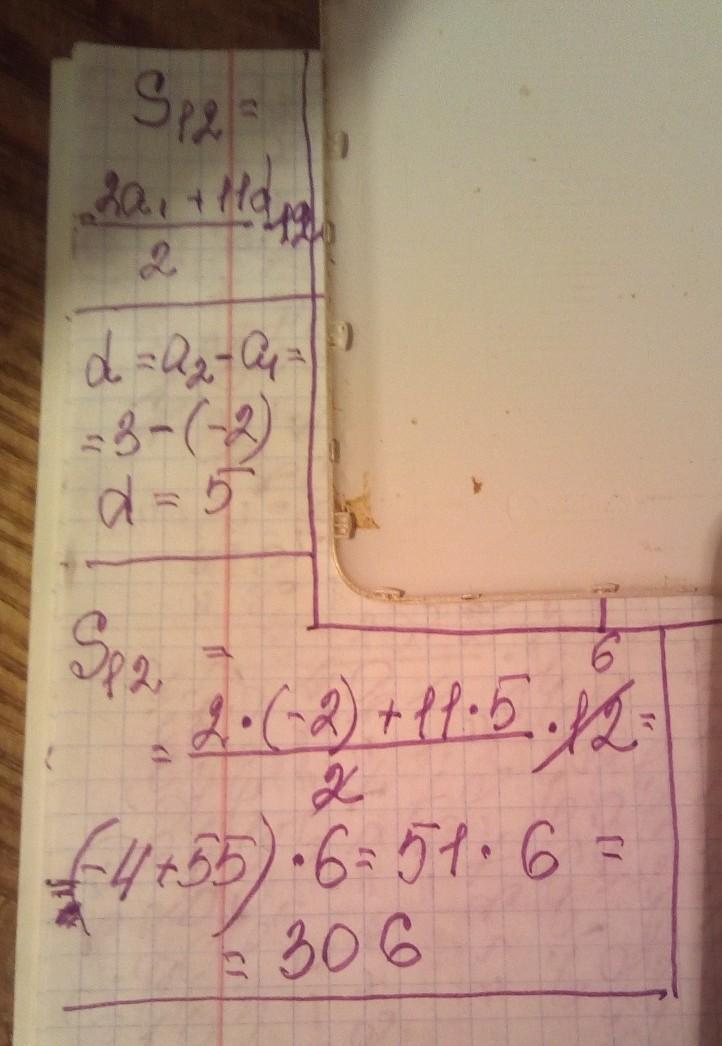 S₁₂ =
= (2a₁ + 11d)/2 · 12
d = a₂ - a₁ =
= 3 - (-2)
d = 5
S₁₂ =
6
= (2 · (-2) + 11 · 5)/2 · 12 =
(-4 + 55) · 6 = 51 · 6 =
= 306